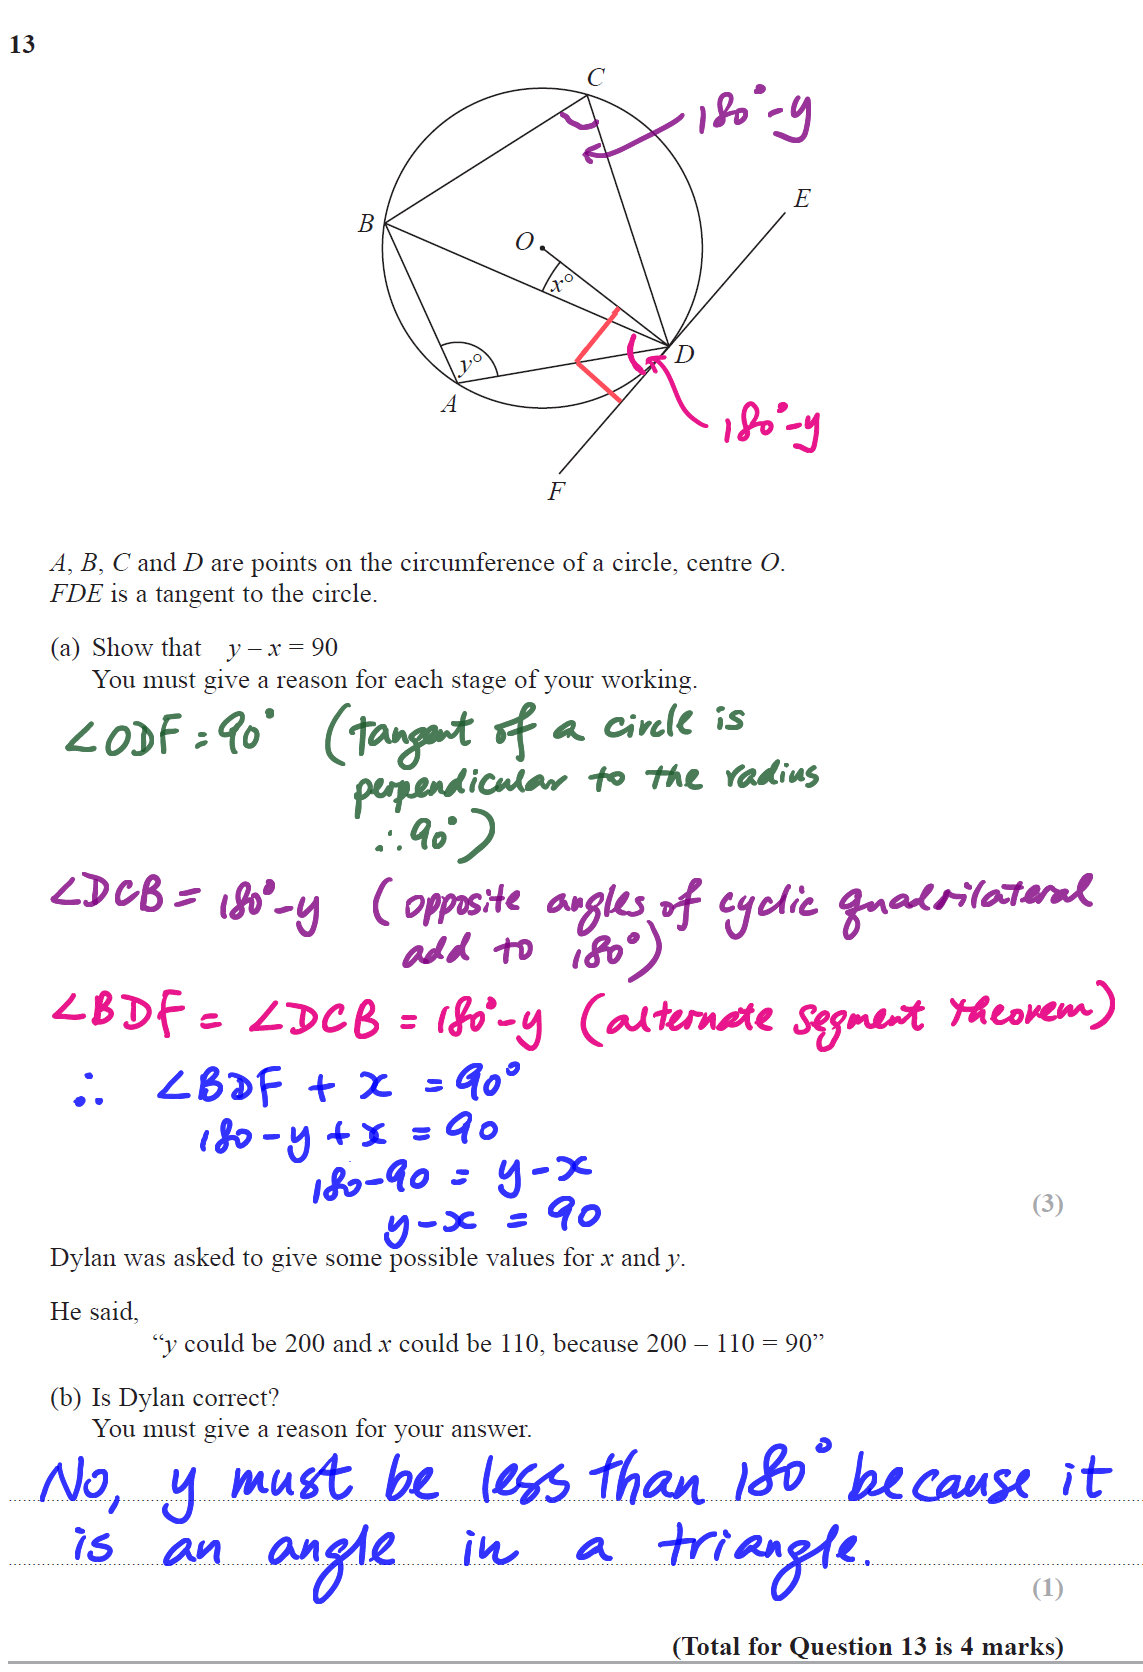 13
C
180°-y
E
B
O
x°
D
y°
A
180°-y
F
A, B, C and D are points on the circumference of a circle, centre O.
FDE is a tangent to the circle.
(a) Show that y – x = 90
You must give a reason for each stage of your working.
∠ODF = 90° (tangent of a circle is
perpendicular to the radius
∴ 90°)
∠DCB = 180°-y (opposite angles of cyclic quadrilateral
add to 180°)
∠BDF = ∠DCB = 180°-y (alternate segment theorem)
∴ ∠BDF + x = 90°
180-y+x = 90
180-90 = y-x
y-x = 90
(3)
Dylan was asked to give some possible values for x and y.
He said,
“y could be 200 and x could be 110, because 200 – 110 = 90”
(b) Is Dylan correct?
You must give a reason for your answer.
No, y must be less than 180° because it
is an angle in a triangle.
(1)
(Total for Question 13 is 4 marks)